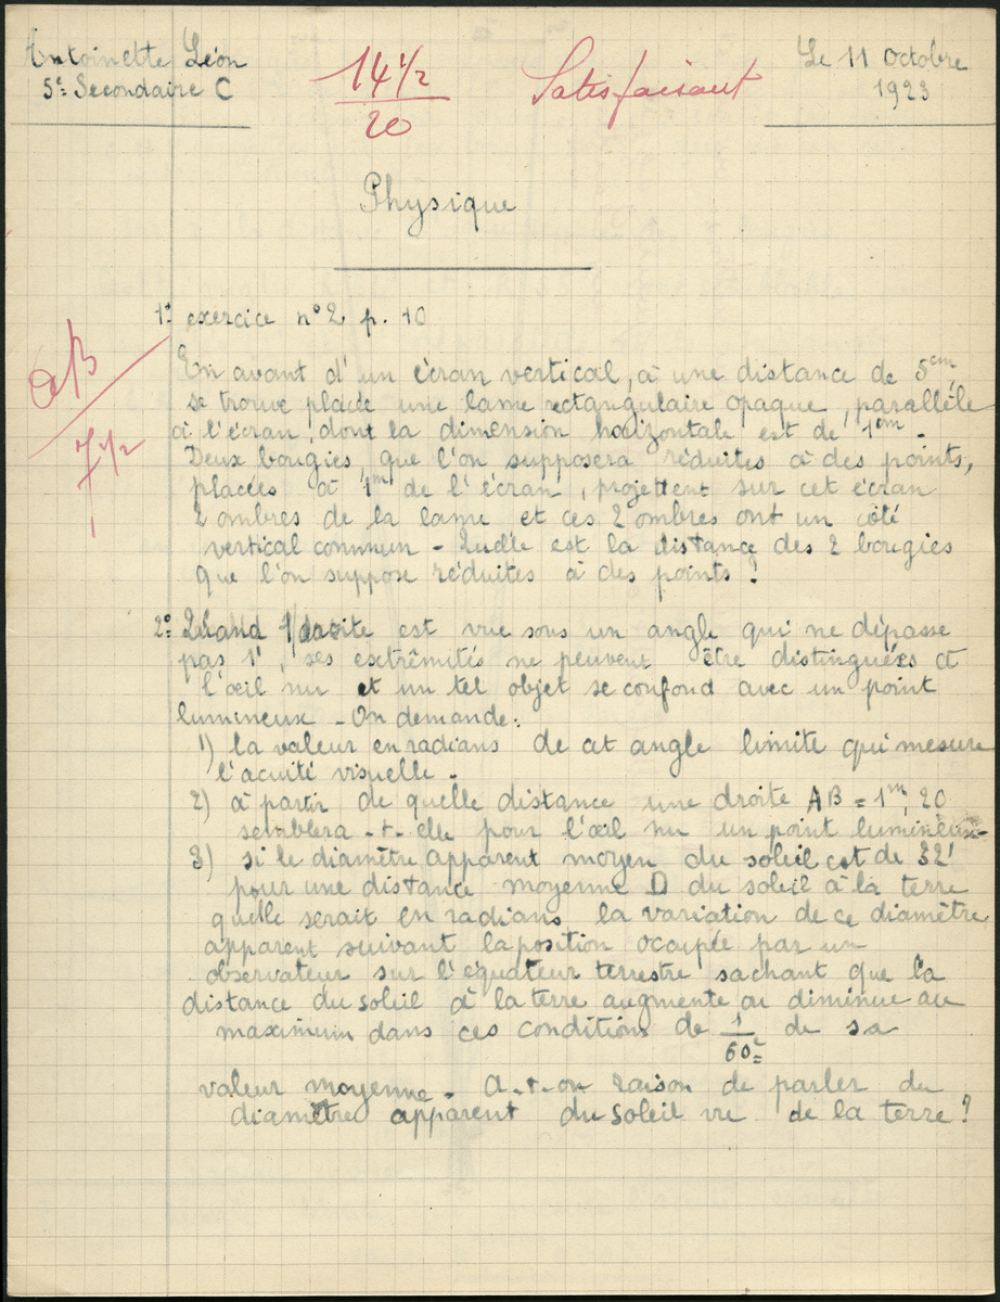 Antoinette Léon
5e Secondaire C
14 1/2
20
Satisfaisant
Le 11 Octobre
1923
Physique
1° exercice n° 2 p. 10
AB
7 1/2
En avant d'un écran vertical, à une distance de 5cm
se trouve placée une lame rectangulaire opaque, parallèle
à l'écran, dont la dimension horizontale est de 1cm.
Deux bougies, que l'on supposera réduites à des points,
placées à 1m de l'écran, projettent sur cet écran
2 ombres de la lame et ces 2 ombres ont un côté
vertical commun - Quelle est la distance des 2 bougies
que l'on suppose réduites à des points ?
2° Quand 1 droite est vue sous un angle qui ne dépasse
pas 1', ses extrêmités ne peuvent être distinguées à
l'œil nu et un tel objet se confond avec un point
lumineux - On demande:
1) la valeur en radians de cet angle limite qui mesure
l'acuité visuelle.
2) à partir de quelle distance une droite AB = 1m,20
semblera-t-elle pour l'œil nu un point lumineux
3) si le diamètre apparent moyen du soleil est de 32'
pour une distance moyenne D du soleil à la terre
quelle serait en radians la variation de ce diamètre
apparent suivant la position occupée par un
observateur sur l'équateur terrestre sachant que la
distance du soleil à la terre augmente ou diminue au
maximum dans ces conditions de 1/60e de sa
valeur moyenne. A-t-on raison de parler du
diamètre apparent du soleil vu de la terre ?